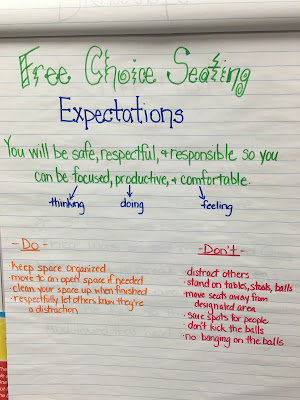 Free Choice Seating
Expectations
You will be safe, respectful, + responsible so you
can be focused, productive, + comfortable.
thinking doing feeling
- Do -
· keep space organized
· move to an open space if needed
· clean your space up when finished
· respectfully let others know they're
a distraction
- Don't -
· distract others
· stand on tables, stools, balls
· move seats away from
designated area
· save spots for people
· don't kick the balls
· no banging on the balls